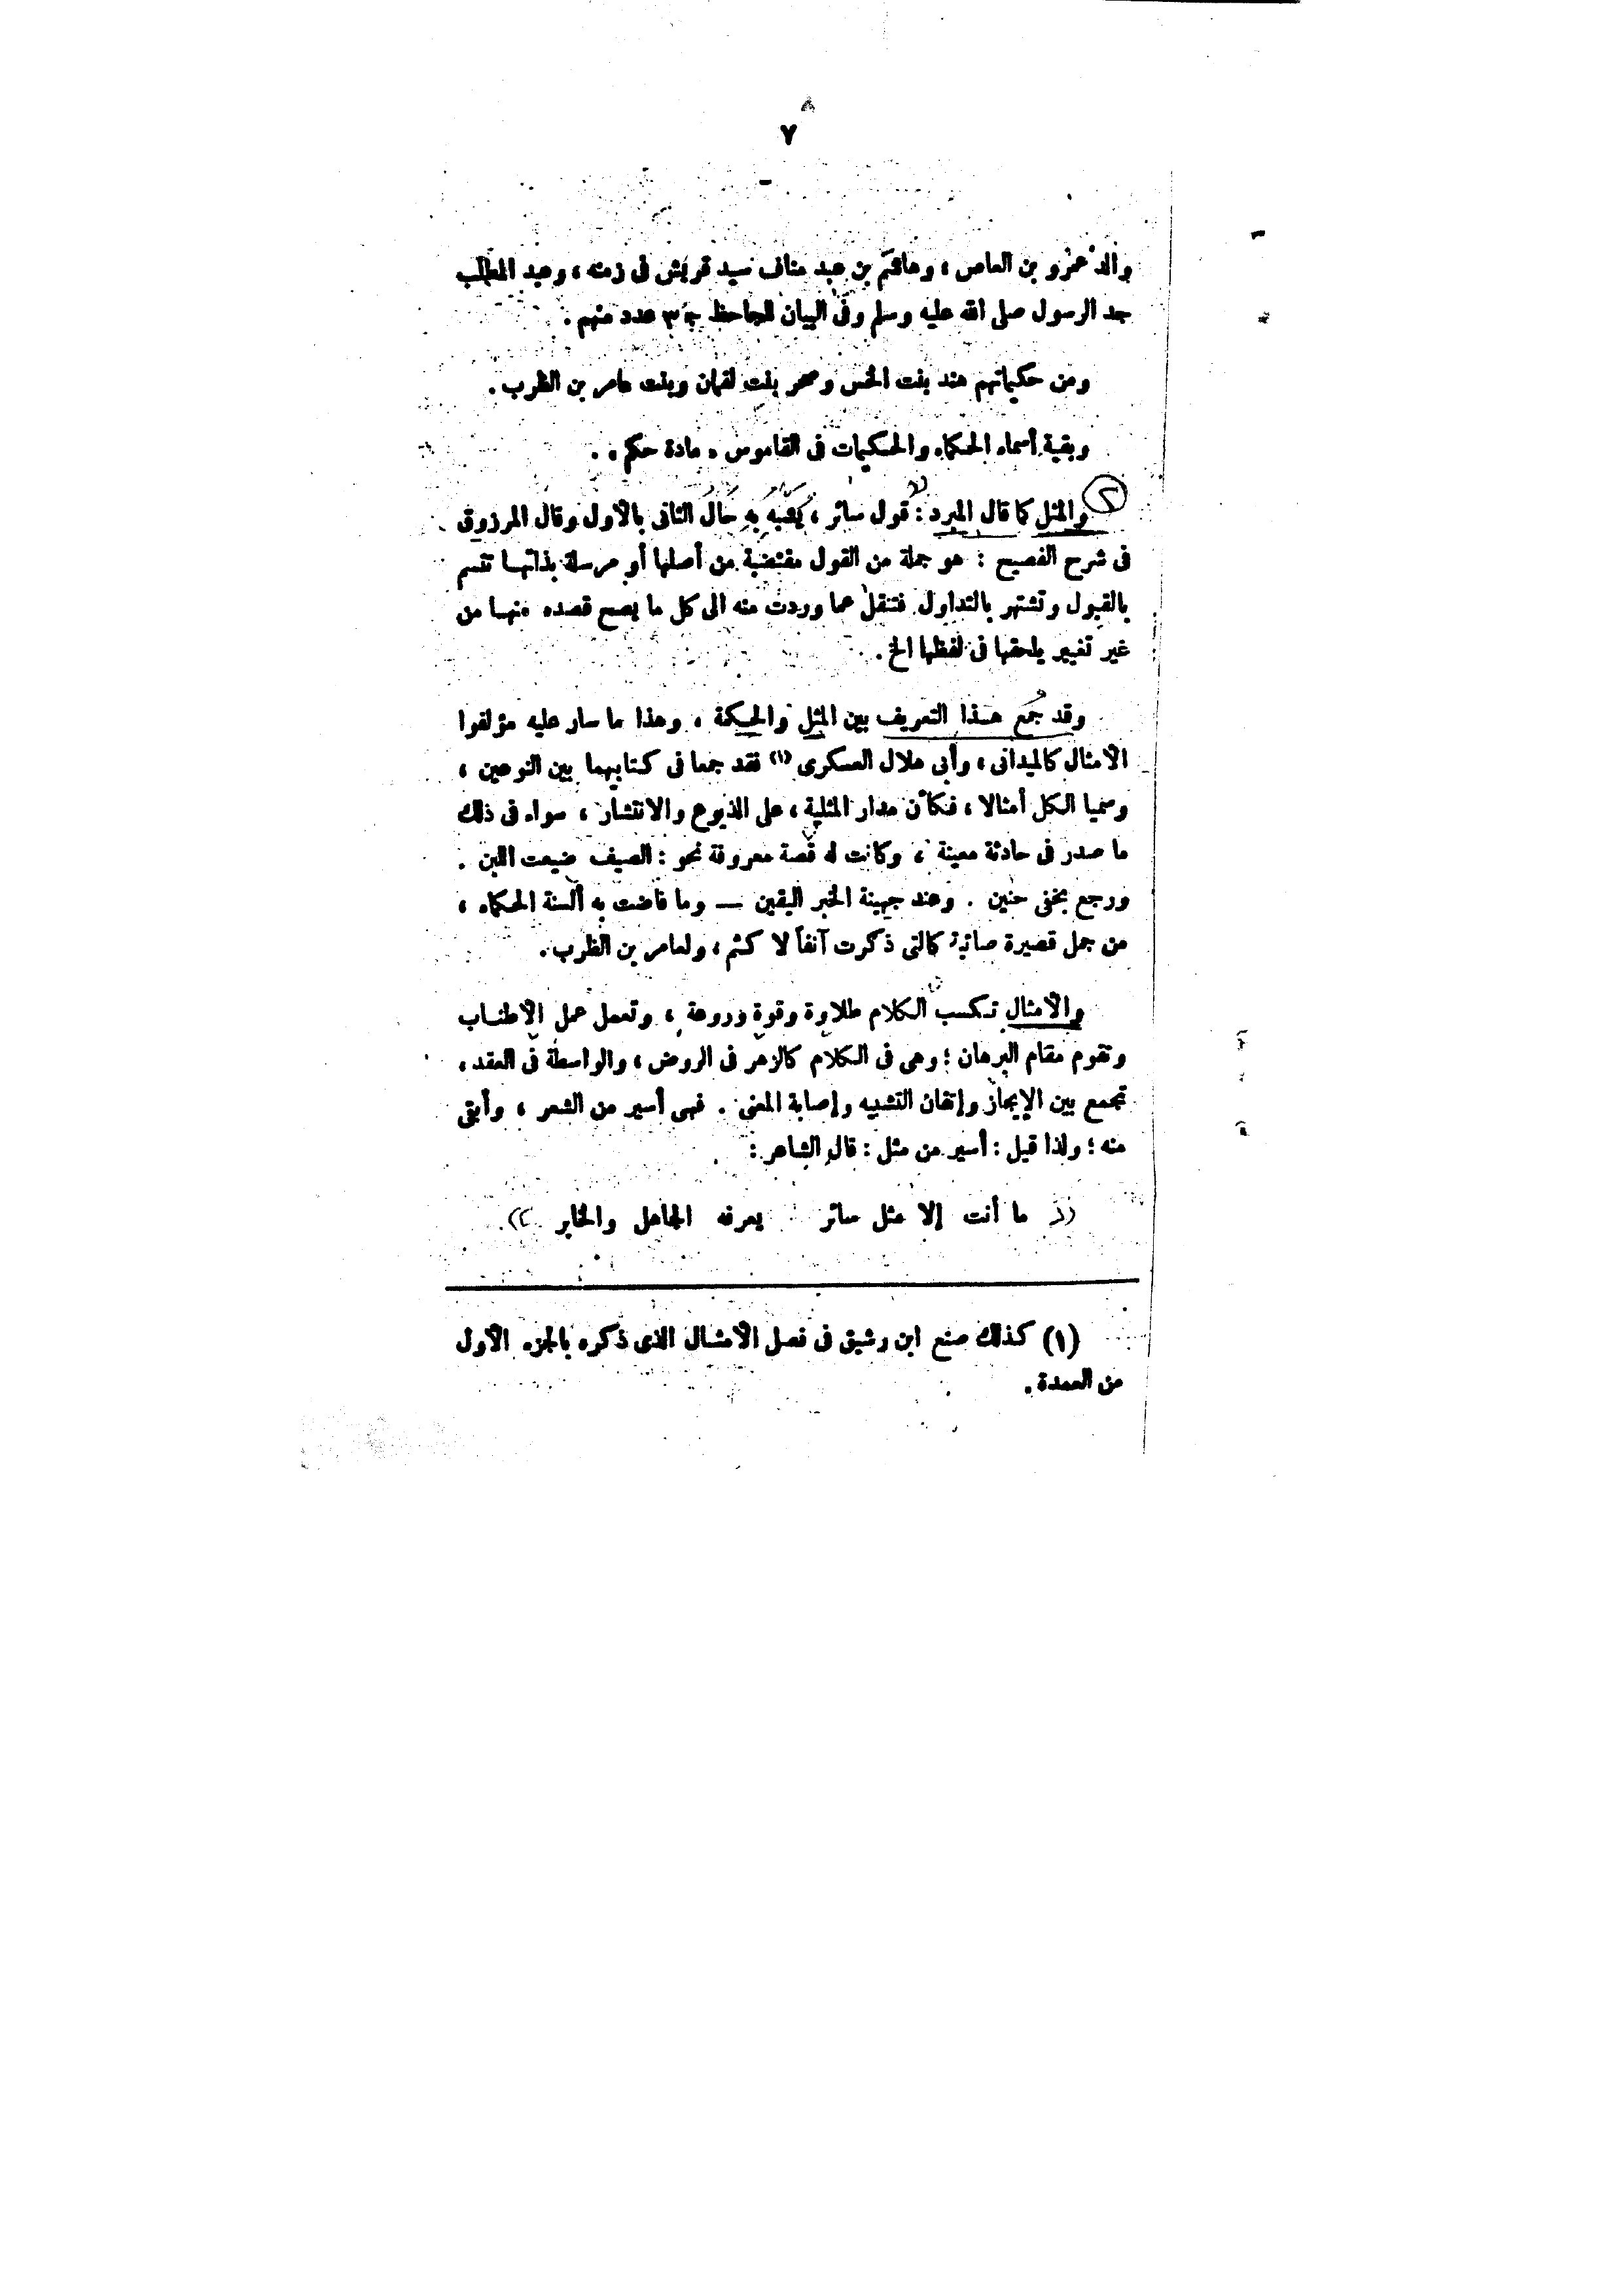 ٧
والد عمرو بن العاص ، وهاشم بن عبد مناف سيد قريش فى زمنه ، وعبد المطلب
جد الرسول صلى الله عليه وسلم وفى البيان للجاحظ جـ ٣ عدد منهم .
ومن حكيماتهم هند بنت الخس وصحر بنت لقمان وبنت عامر بن الظرب .
وبقية أسماء الحكماء والحكيمات فى القاموس « مادة حكم » .
٢
والمثل كما قال المبرد : قول سائر ، يُشَبَّه بِهِ حَالُ الثانى بالأول وقال المرزوقى
فى شرح الفصيح : هو جملة من القول مقتضبة من أصلها أو مرسلة بذاتها تتسم
بالقبول وتشتهر بالتداول فتنقل عما وردت منه الى كل ما يصح قصده منها من
غير تغيير يلحقها فى لفظها الخ .
وقد جُمع هذا التعريف بين المثل والحكمة ، وهذا ما سار عليه مؤلفوا
الأمثال كالميدانى ، وأبى هلال العسكرى (١) فقد جمعا فى كتابيهما بين النوعين ،
وسميا الكل أمثالا ، فكأن مدار المثلية ، على الذيوع والانتشار ، سواء فى ذلك
ما صدر فى حادثة معينة ، وكانت له قصة معروفة نحو : الصيف ضيعت اللبن .
ورجع بخفى حنين . وعند جهينة الخبر اليقين — وما فاضت به ألسنة الحكماء ،
من جمل قصيرة صائبة كالتى ذكرت آنفاً لا كثم ، ولعامر بن الظرب .
والأمثال تكسب الكلام طلاوة وقوة وروعة ، وتعمل عمل الاطناب
وتقوم مقام البرهان ؛ وهى فى الكلام كالزهر فى الروض ، والواسطة فى العقد ،
تجمع بين الإيجاز وإتقان التشبيه وإصابة المعنى . فهى أسير من الشعر ، وأبقى
منه ؛ ولذا قيل : أسير من مثل : قال الشاعر :
(( ما أنت إلا مثل سائر يعرفه الجاهل والخابر ))
(١) كذلك صنع ابن رشيق فى فصل الأمثال الذى ذكره بالجزء الأول
من العمدة .